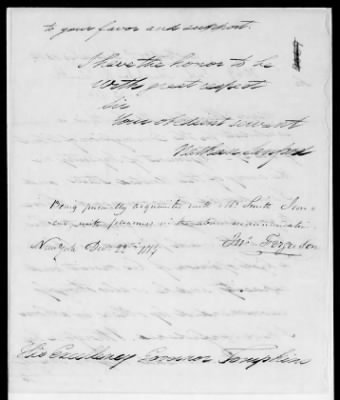 to your favor and support.
I have the honor to be
With great respect
Sir
Your obedient servant
Nathan Sanford
Being personally acquainted with Mr. Smith I con-
cur with pleasure in the above recommendation
New York Dec 22nd
Jno Ferguson
His Excellency Governor Tompkins